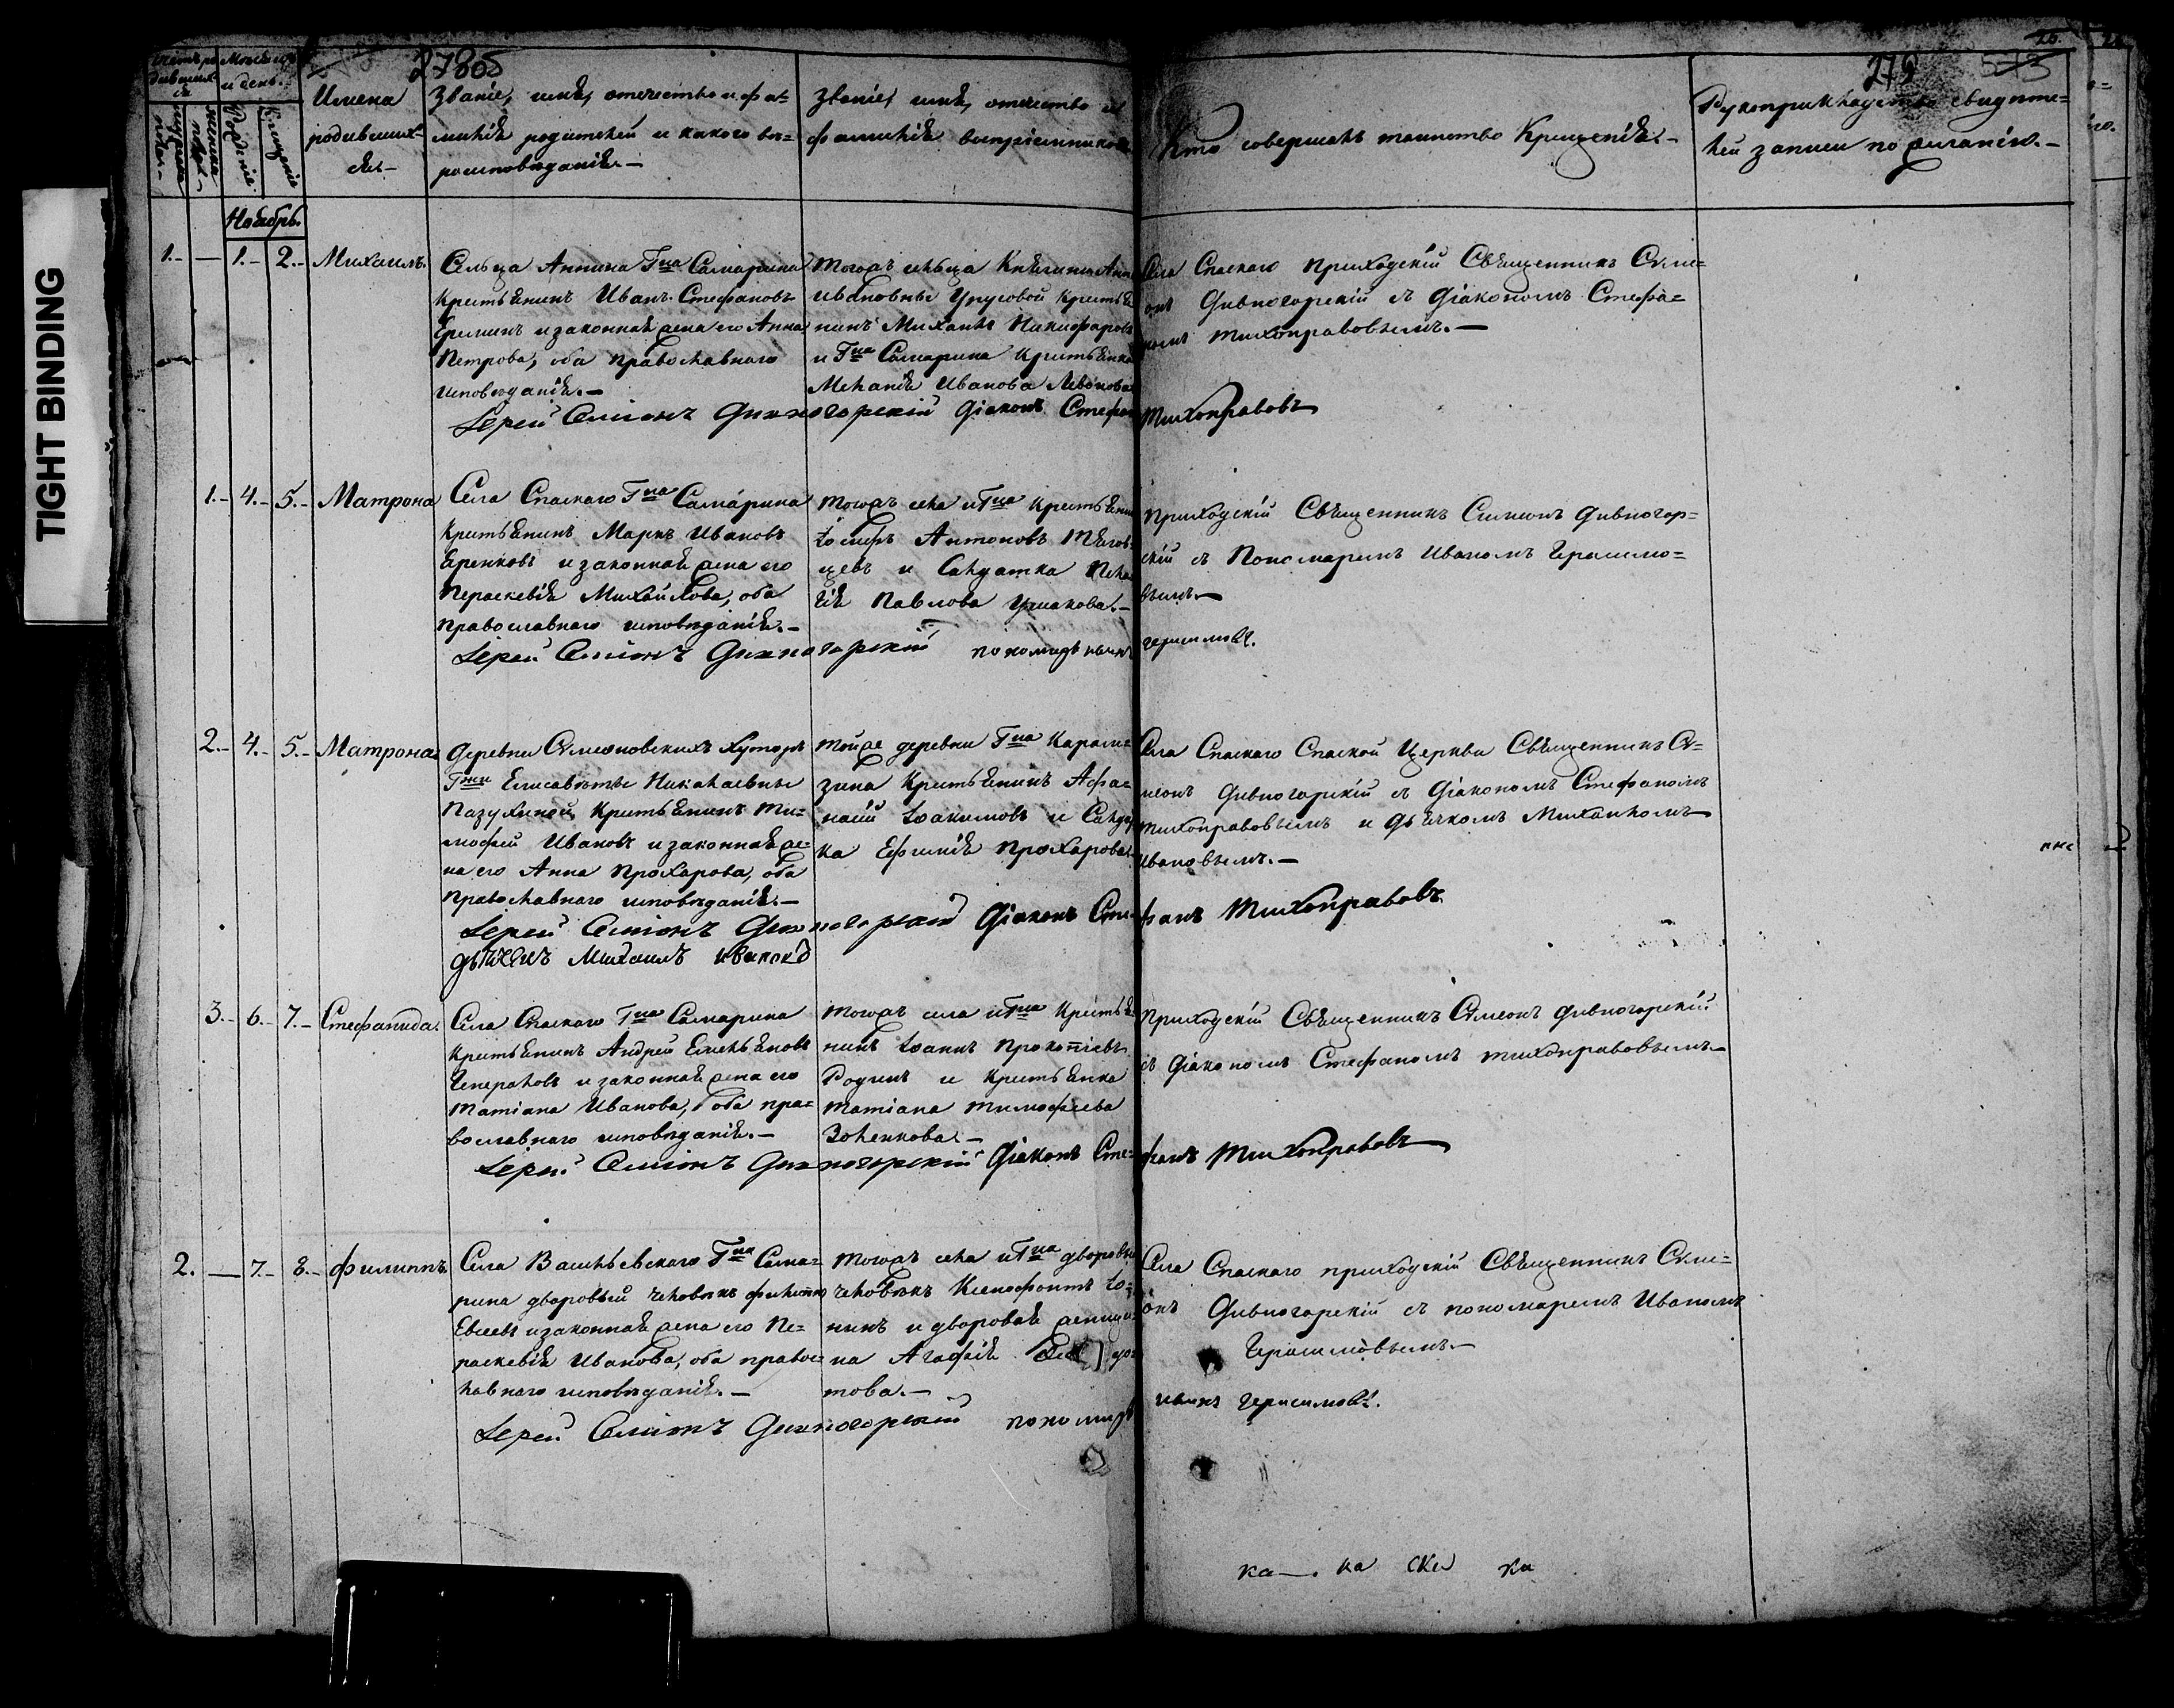 TIGHT BINDING
278об
279
Счетъ родившихся
Мѣсяцъ и день.
Имена родившихся.—
Званіе, имя, отечество и фамилія родителей и какого вѣроисповѣданія.—
Званіе, имя, отечество и фамилія воспріемниковъ
Кто совершалъ таинство Крещенія.—
Рукоприкладство свидѣтелей записи по желанію.—
мужеска полка
женска пола
Рожденія
Крещенія
Ноябрь.
1.— — 1.— 2.— Михаилъ.
Сельца Аннина Гна Самарина
Крестьянинъ Иванъ Стефановъ
Ереминъ и законная жена его Анна
Петрова, оба православнаго
исповѣданія.—
тогожъ сельца Княгини Анны
Ивановны Урусовой Крестья
нинъ Михаилъ Никифаровъ
и Гна Самарина Крестьянка
Меланія Иванова Левонова
Села Спаскаго приходскій Священникъ Симе=
онъ Дивногорскій съ Діакономъ Стефа=
номъ Тихонравовымъ.—
Іерей Симіонъ Дивногорскій Діаконъ Стефанъ Тихонравовъ
1.— 4.— 5.— Матрона
Села Спаскаго Гна Самарина
Крестьянинъ Маркъ Ивановъ
Еренковъ и законная жена его
Пераскевія Михайлова, оба
православнаго исповѣданія.—
тогожъ села и Гна Крестьянинъ
Іосифъ Антоновъ
цевъ и Салдатка Пела
гія Павлова Ушакова.—
приходскій Священникъ Симеонъ Дивногор=
скій съ Пономаремъ Иваномъ Герасимо=
вымъ.—
Іерей Симіонъ Дивногорскій пономарь иванъ герасимовъ.
2.— 4.— 5.— Матрона
Деревни Симеоновскихъ Хуторъ
Гжи Елисаветы Николаевны
Пазухиной Крестьянинъ Ти=
мофей Ивановъ и законная же=
на его Анна Прохарова, оба
православнаго исповѣданія.—
тойже деревни Гна Карам=
зина Крестьянинъ Афа=
насій Іоакимовъ и Салдат
ка Ефимія Прохарова.
Села Спаскаго Спаской Церкви Священникъ Си=
меонъ Дивногорскій съ Діакономъ Стефаномъ
Тихонравовымъ и дьячкомъ Михаиломъ
Ивановымъ.—
Іерей Симіонъ Дивногорскій Діаконъ Стефанъ Тихонравовъ
дьячекъ Михаилъ Ивановъ
3.— 6.— 7.— Стефанида.
Села Спаскаго Гна Самарина
Крестьянинъ Андрей Емельяновъ
Чепраковъ и законная жена его
Татіана Иванова, оба пра=
вославнаго исповѣданія.—
тогожъ села и Гна Крестья
нинъ Іоаннъ Прокопіевъ
Родинъ и Крестьянка
Татіана Тимофеева
Золенкова.—
Приходскій Священникъ Симеонъ Дивногорскій
съ Діакономъ Стефаномъ Тихонравовымъ.
Іерей Симіонъ Дивногорскій Діаконъ Стефанъ Тихонравовъ
2. — 7.— 8.— Филиппъ.
Села Васильевскаго Гна Сама=
рина дворовый человѣкъ
Евсеевъ и законная жена его Пе=
раскевія Иванова, оба правос=
лавнаго исповѣданія.—
тогожъ села и Гна дворовый
человѣкъ Ксенофонтъ Іо=
нинъ и дворовая женщи
на Агафія
това.—
Села Спаскаго приходскій Священникъ Симе=
онъ Дивногорскій съ пономаремъ Иваномъ
Герасимовымъ.—
Іерей Симіонъ Дивногорскій пономарь иванъ герасимовъ.
ка—. ка ски ка